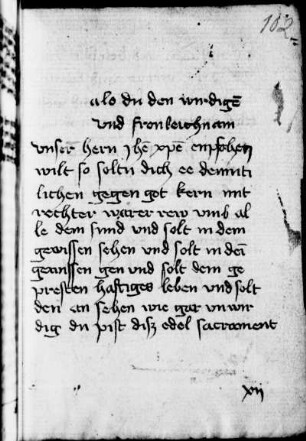 102
als du den wirdigē
vnd fronleichnam
vnser hern jhe xpe empfohen
wilt so soltu dich ee demuti
lichen gegen got kern mit
rechter warer rew vmb al
le dein sund vnd solt in dein
gewissen sehen vnd solt in dei
gewissen gen vnd solt dein ge
presten haftiges leben vnd solt
den an sehen wie gar vnwir
dig du pist disz edel sacrament
xii